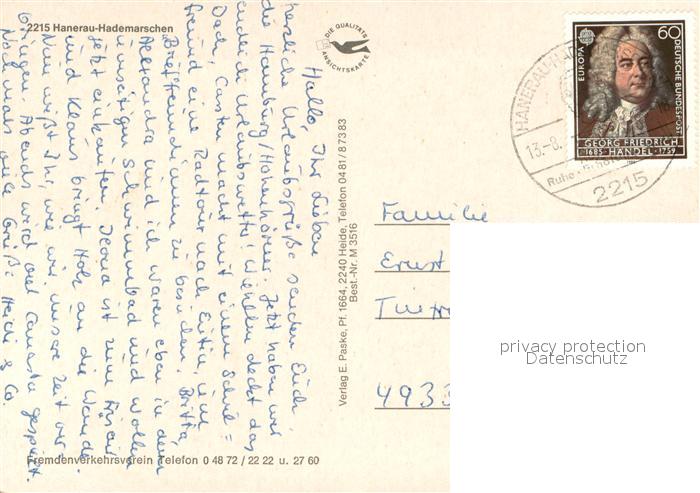 2215 Hanerau-Hademarschen
DIE QUALITÄTS
ANSICHTSKARTE
EUROPA
60
DEUTSCHE BUNDESPOST
GEORG FRIEDRICH
1685 HÄNDEL 1759
HANERAU-H
13.-8.
2215
Hallo, Ihr Lieben
herzliche Urlaubsgrüße senden Euch,
die Hamburg/Hohenhörner. Jetzt haben wir
endlich Urlaubswetter. Wilhelm deckt das
Dach, Carsten macht mit einem Schul=
freund eine Radtour nach Eutin, um
Brieffreundinnen zu besuchen. Britta,
Alexandra und ich waren eben in dem
einzigen Schwimmbad und wollen
jetzt einkaufen. Ilona ist zum Frisör
und Klaus bringt Holz an die Wände.
Nun wißt Ihr, wie wir unsere Zeit ver=
bringen. Abends wird viel Canasta gespielt.
Nochmals viele Grüße Heidi & Co.
Verlag E. Paske, Pf. 1664, 2240 Heide, Telefon 0481/87383
Best.-Nr. M 3516
Familie
Ernst
4933
privacy protection
Datenschutz
Fremdenverkehrsverein Telefon 0 48 72 / 22 22 u. 27 60